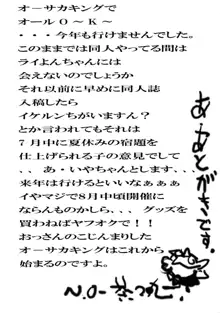 オーサカキングで
オールＯ～Ｋ～
・・・今年も行けませんでした。
このままでは同人やってる間は
ライよんちゃんには
会えないのでしょうか
それ以前に早めに同人誌
入稿したら
イケルンちがいますん？
とか言われてもそれは
７月中に夏休みの宿題を
仕上げられる子の意見でして
、、あ・いやちゃんとします、、、
来年は行けるといいなぁぁぁ
イヤマジで８月中頃開催に
ならんものかしら、、、グッズを
買わねばヤフオクで！！
おっさんのこじんまりした
オーサカキングはこれから
始まるのですよ。
あ あとがきです。
N.O-